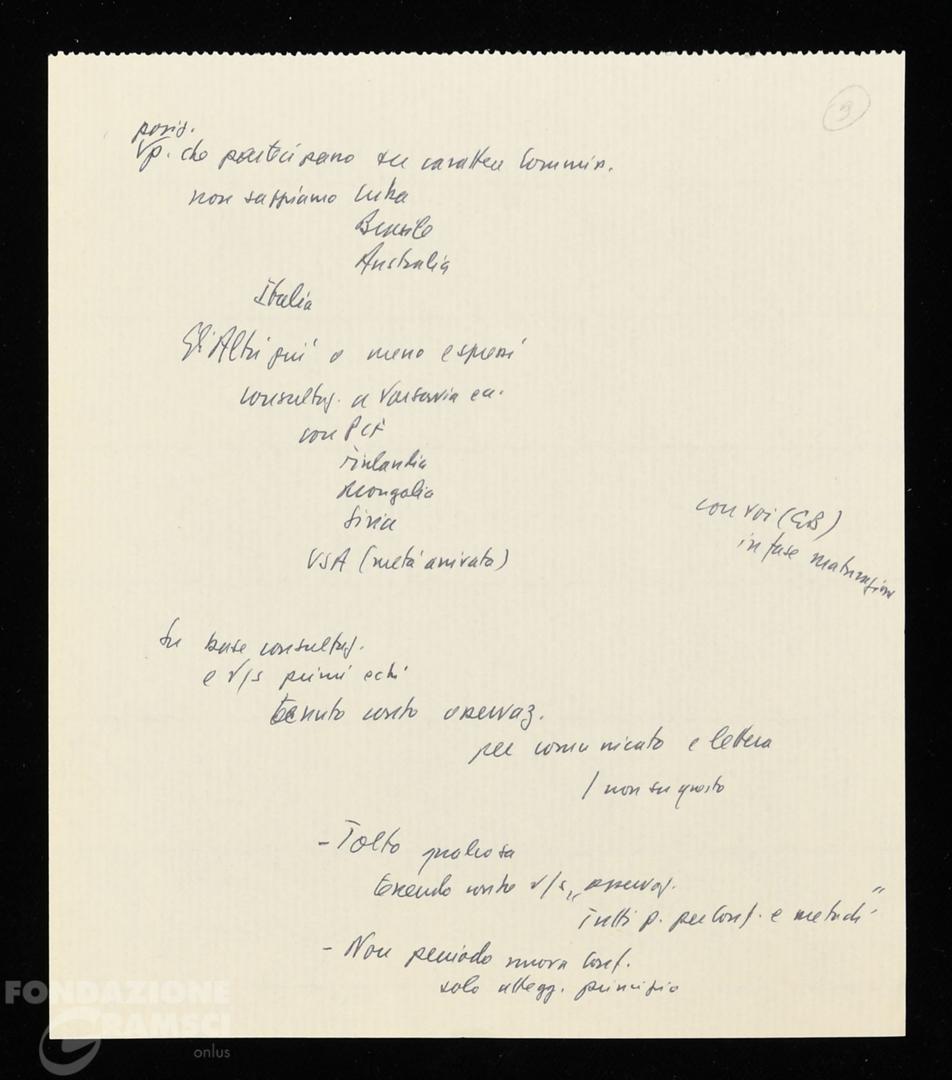 3
posiz.
Vp. che partecipano su carattere Commiss.
non sappiamo Cuba
Brasile
Australia
Italia
Gli Altri più o meno espressi
consultaz. a Varsavia ecc.
con PCF
Finlandia
Mongolia
Siria
USA (metà arrivata)
con voi (GB)
in fase maturazione
Su base consultaz.
e v/s primi echi
tenuto conto osservaz.
per comunicato e lettera
/ non su questo
- Tolto qualcosa
tenendo conto v/s „osservaz.
tutti p. per Conf. e metodi"
- Non periodo nuova Conf.
solo attegg. principio
FONDAZIONE
GRAMSCI
onlus